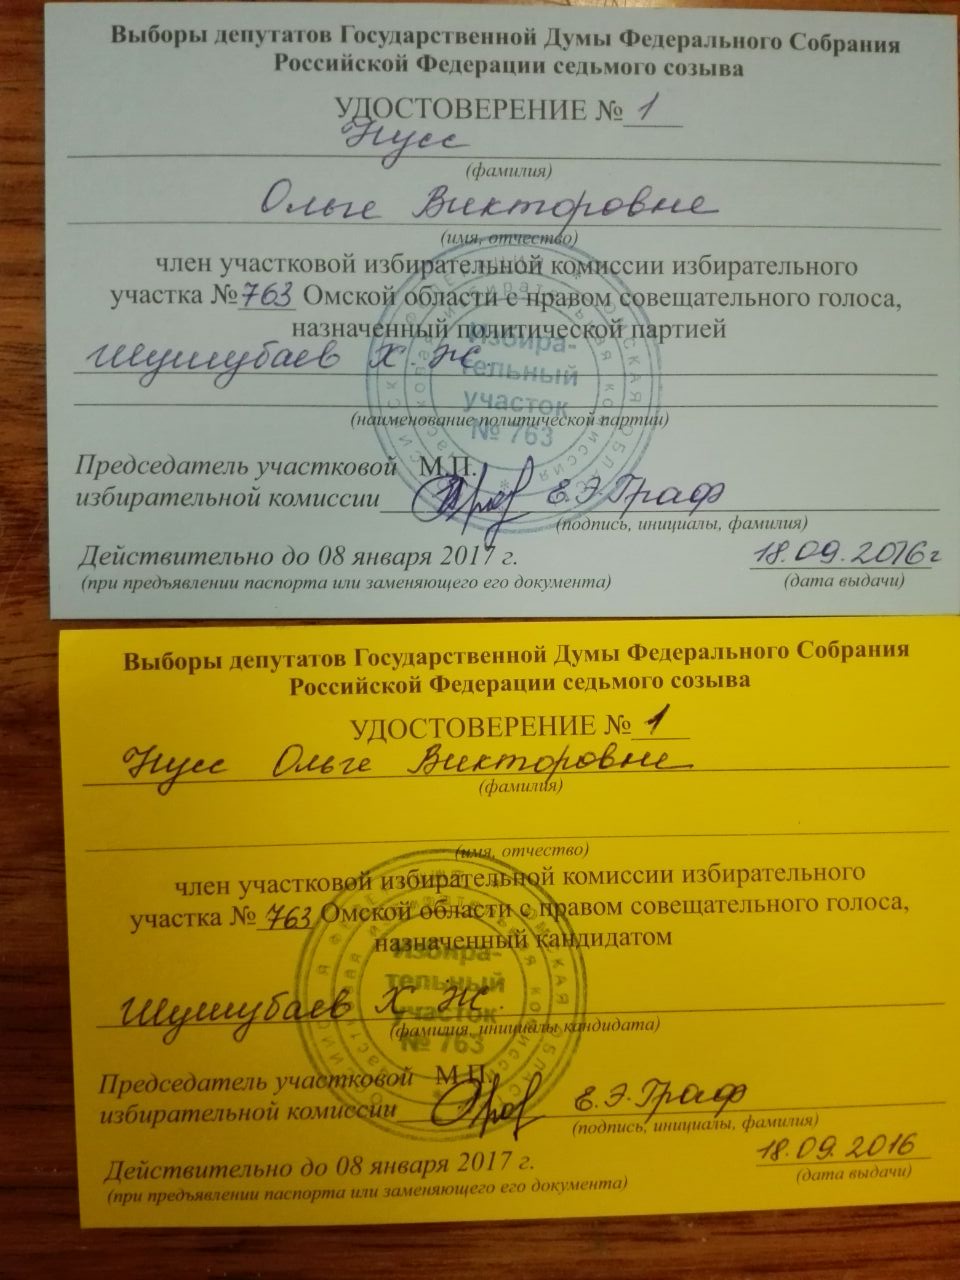 Выборы депутатов Государственной Думы Федерального Собрания
Российской Федерации седьмого созыва
УДОСТОВЕРЕНИЕ № 1
Нусс
(фамилия)
Ольге Викторовне
(имя, отчество)
член участковой избирательной комиссии избирательного
участка № 763 Омской области с правом совещательного голоса,
назначенный политической партией
Шушубаев Х. Ж.
(наименование политической партии)
Избира-
тельный
участок
№ 763
Председатель участковой М.П.
избирательной комиссии Е.Э.Граф
(подпись, инициалы, фамилия)
Действительно до 08 января 2017 г. 18.09.2016г
(при предъявлении паспорта или заменяющего его документа) (дата выдачи)
Выборы депутатов Государственной Думы Федерального Собрания
Российской Федерации седьмого созыва
УДОСТОВЕРЕНИЕ № 1
Нусс Ольге Викторовне
(фамилия)
(имя, отчество)
член участковой избирательной комиссии избирательного
участка № 763 Омской области с правом совещательного голоса,
назначенный кандидатом
Шушубаев Х. Ж.
(фамилия, инициалы кандидата)
Избира-
тельный
участок
№ 763
Председатель участковой М.П.
избирательной комиссии Е.Э.Граф
(подпись, инициалы, фамилия)
Действительно до 08 января 2017 г. 18.09.2016
(при предъявлении паспорта или заменяющего его документа) (дата выдачи)